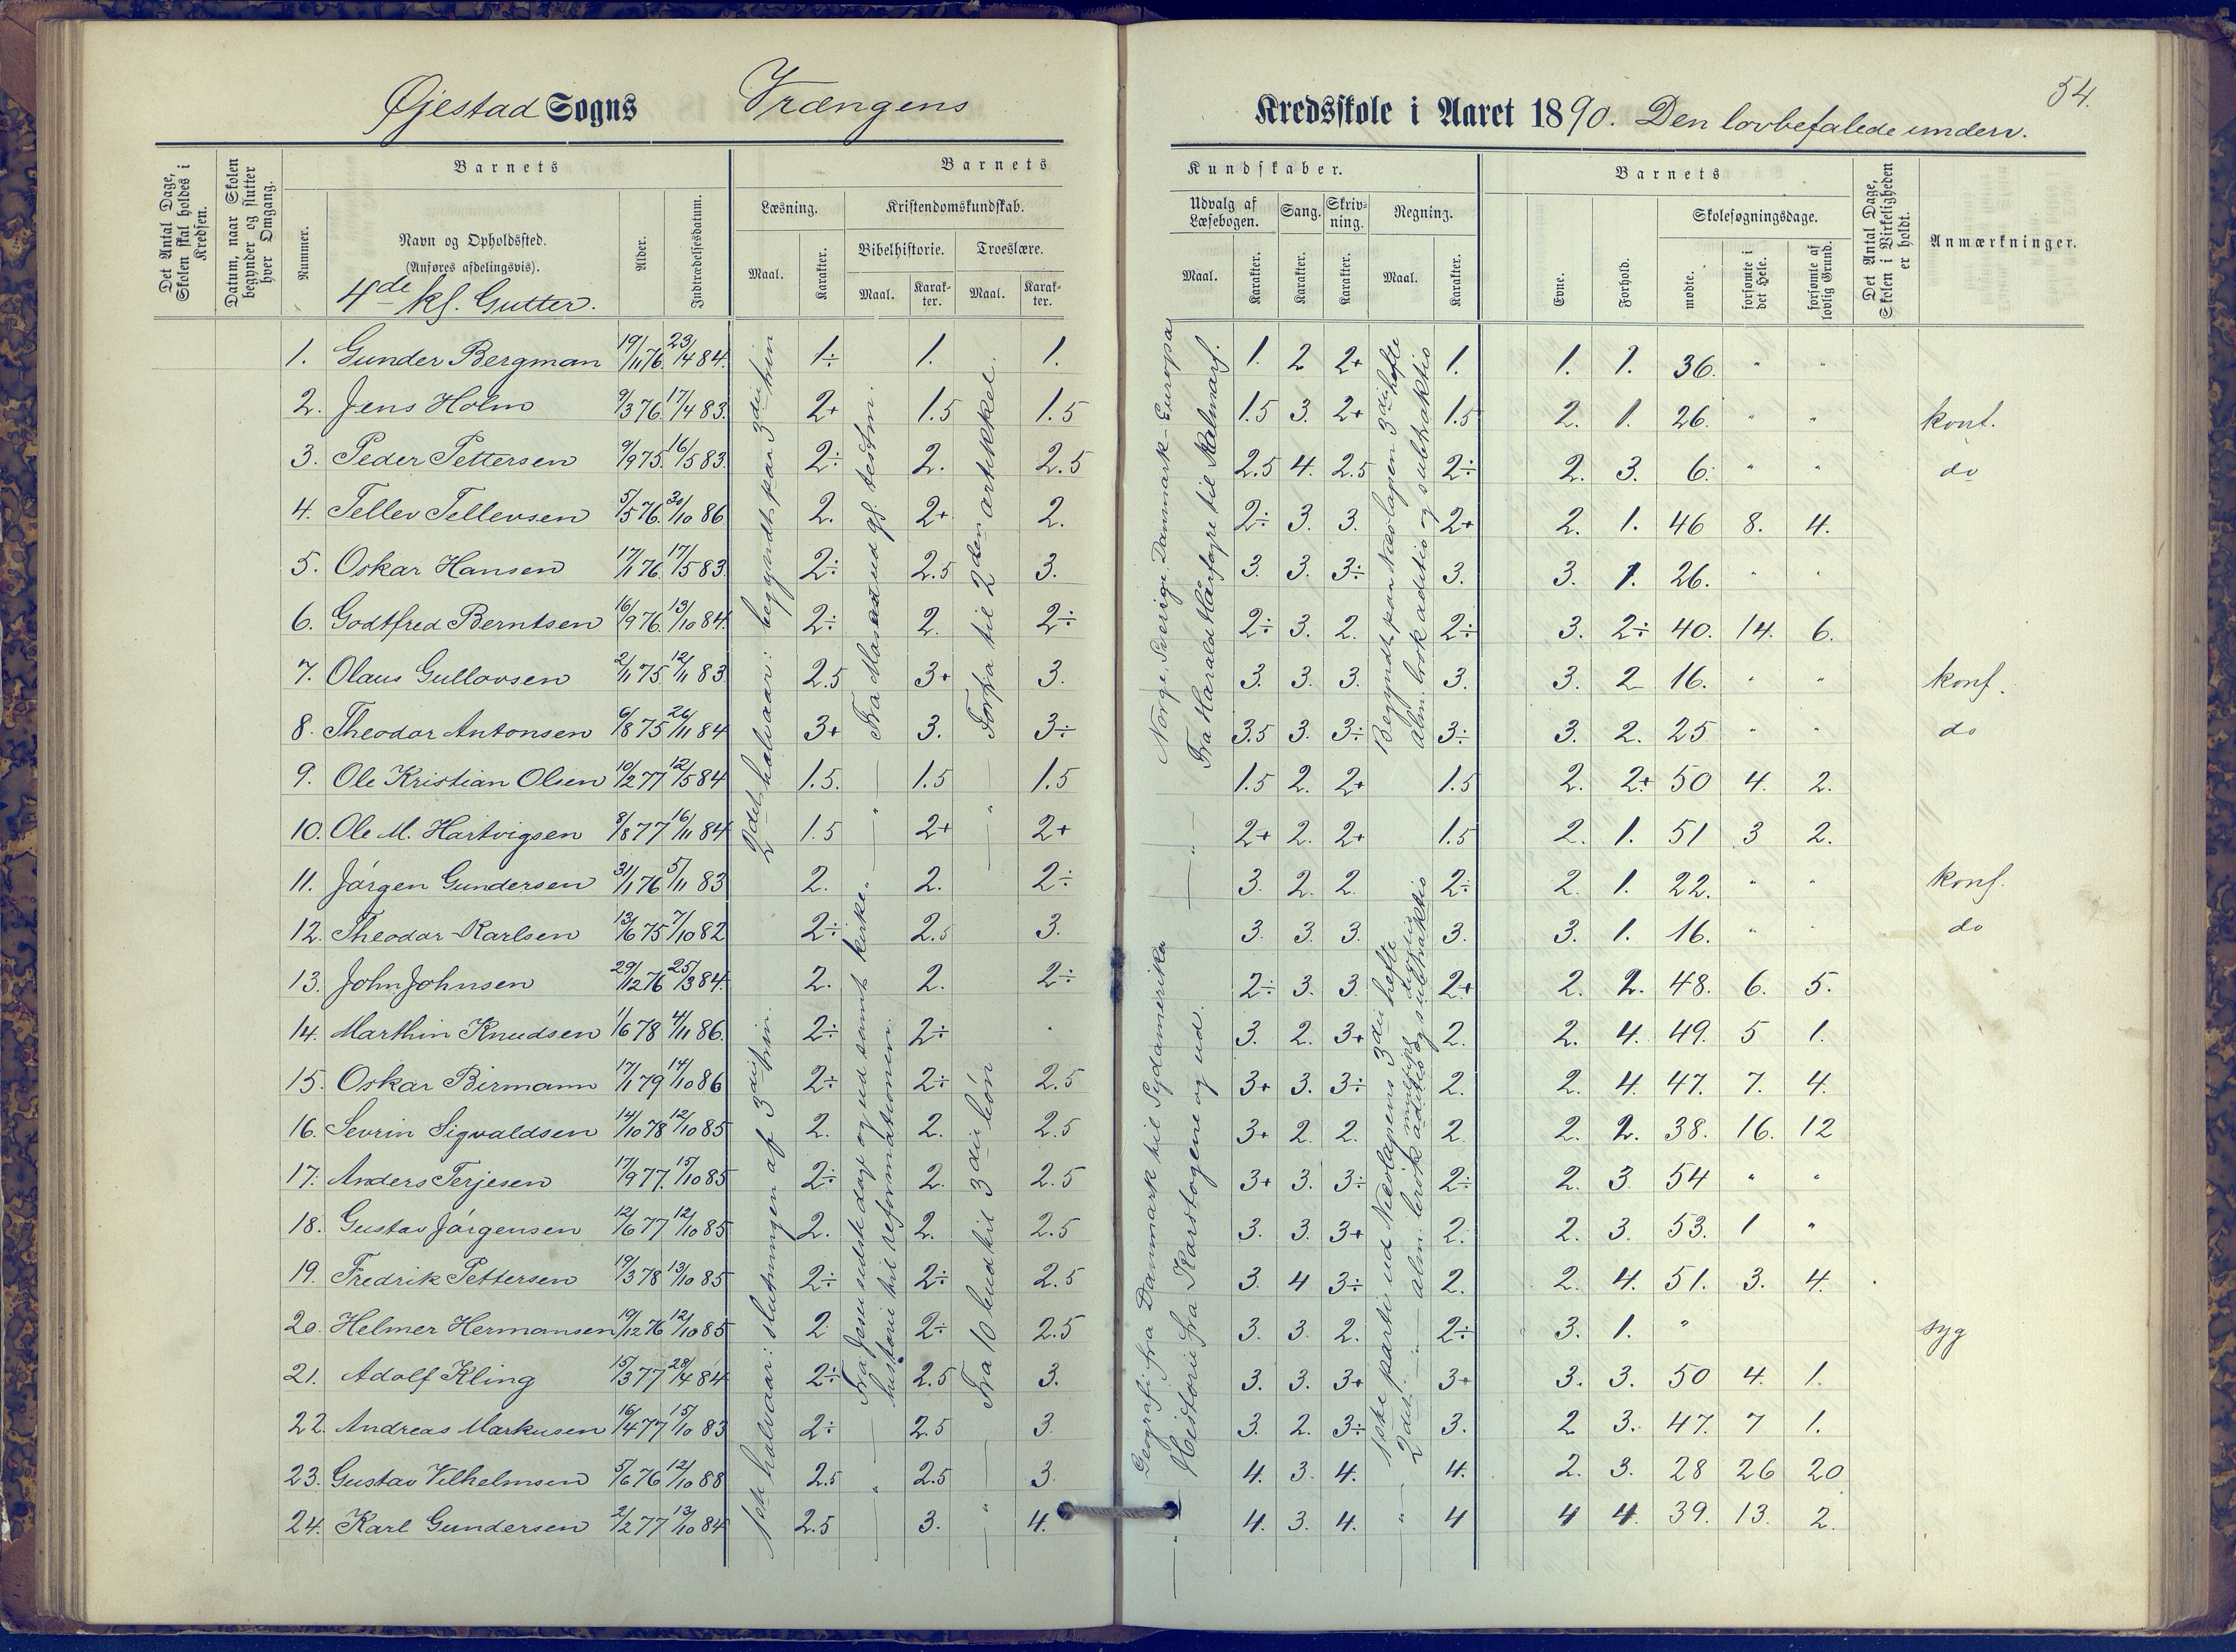 Øjestad Sogns Vrængens
Kredsskole i Aaret 1890. Den lovbefalede underv.
54.
Det Antal Dage, Skolen skal holdes i Kredsen.
Datum, naar Skolen begynder og slutter hver Omgang.
Barnets
Nummer.
Navn og Opholdssted.
(Anføres afdelingsvis).
4de kl. Gutter.
Alder.
Indtrædelsesdatum.
Barnets
Læsning.
Maal.
Karakter.
Kristendomskundskab.
Bibelhistorie.
Maal.
Karakter.
Troeslære.
Maal.
Karakter.
Kundskaber.
Udvalg af Læsebogen.
Maal.
Karakter.
Sang.
Karakter.
Skrivning.
Karakter.
Regning.
Maal.
Karakter.
Barnets
Evne.
Forhold.
Skolesøgningsdage.
mødte.
forsømte i det Hele.
forsømte af lovlig Grund.
Det Antal Dage, Skolen i Virkeligheden er holdt.
Anmærkninger.
1. Gunder Bergman 19/11 76. 23/4 84. 1÷ 1. 1. 1. 2 2+ 1. 1. 1. 36. " "
2. Jens Holm 9/3 76. 17/4 83. 2+ 1.5 1.5 1.5 3. 2+ 1.5 2. 1. 26. " " konf.
3. Peder Pettersen 9/9 75. 16/5 83. 2÷ 2. 2.5 2.5 4. 2.5 2÷ 2. 3. 6. " " do
4. Tellev Tellevsen 5/5 76. 30/10 86. 2. 2+ 2. 2÷ 3. 3. 2+ 2. 1. 46 8. 4.
5. Oskar Hansen 17/1 76. 17/5 83. 2÷ 2.5 3. 3. 3. 3÷ 3. 3. 1. 26. " "
6. Godtfred Berntsen 16/9 76. 13/10 84. 2÷ 2. 2÷ 2÷ 3. 2. 2÷ 3. 2÷ 40. 14. 6.
7. Olaus Gullovsen 2/11 75. 12/11 83. 2.5 3+ 3. 3. 3. 3. 3. 3. 2 16. " " konf.
8. Theodor Antonsen 6/8 75 26/11 84 3+ 3. 3÷ 3.5 3. 3÷ 3÷ 3. 2. 25 " " do
9. Ole Kristian Olsen 10/2 77 12/5 84 1.5. 1.5 1.5 1.5 2. 2+ 1.5 2. 2+ 50 4. 2.
10. Ole M. Hartvigsen 8/8 77 16/11 84 1.5 2+ 2+ 2+ 2. 2+ 1.5 2. 1. 51 3 2.
11. Jørgen Gundersen 31/1 76 5/11 83 2. 2. 2÷ 3. 2. 2. 2÷ 2. 1. 22. " " konf.
12. Theodor Karlsen 13/6 75 7/10 82 2÷ 2.5 3. 3. 3. 3. 3. 3. 1. 16. " " do
13. John Johnsen 29/12 76 25/3 84. 2. 2. 2÷ 2÷ 3. 3. 2+ 2. 2. 48. 6. 5.
14. Marthin Knudsen 1/6 78 4/11 86. 2÷ 2÷ " 3. 2. 3+ 2. 2. 4. 49. 5 1.
15. Oskar Birmann 17/1 79 14/10 86 2÷ 2÷ 2.5 3+ 3. 3÷ 2. 2. 4. 47. 7. 4.
16. Sevrin Sigvaldsen 14/10 78 12/10 85 2. 2. 2.5 3+ 2. 2. 2 2. 2. 38. 16. 12
17. Anders Terjesen 17/9 77. 15/10 85 2÷ 2. 2.5 3+ 3. 3÷ 2÷ 2. 3. 54 " "
18. Gustav Jørgensen 12/6 77 12/10 85 2. 2. 2.5 3. 3. 3+ 2. 2. 3. 53. 1 "
19. Fredrik Pettersen 19/3 78 13/10 85 2÷ 2÷ 2.5 3. 4 3÷ 2. 2. 4. 51. 3. 4.
20. Helmer Hermansen 19/12 76 12/10 85 2 2÷ 2.5 3. 3. 2. 2÷ 3. 1. " syg
21. Adolf Kling 15/3 77 28/4 84 2÷ 2.5 3. 3. 3. 3+ 3+ 3. 3. 50 4. 1.
22. Andreas Markusen 16/4 77 15/10 83 2÷ 2.5 3. 3. 2. 3÷ 3. 2 3. 47. 7 1.
23. Gustav Vilhelmsen 5/6 76 12/10 88 2.5 2.5 3. 4. 3. 4. 4. 2. 3. 28 26 20
24. Karl Gundersen 2/2 77 13/10 84 2.5 3. 4. 4. 3. 4. 4 4 4. 39. 13. 2.
2det halvaar: begyndt paa 3die trin
1ste halvaar: slutningen af 3die trin.
Fra Jesu sidste dage og ud samt kirke-
historie til reformationen.
Forfra til 2den artikkel.
Fra 10 bud til 3die bøn
Norge, Sverige, Danmark - Europa
Fra Harald Haarfagre til Kalmarf.
Geografi fra Danmark til Sydamerika
Historie fra Karstogene og ud.
Begyndt paa Nicolaysen 3die hefte
alm. brok aditio og subtraktio
1ste parti ud Nicolaysens 3die hefte
2det — " — alm. brok aditio og subtraktio